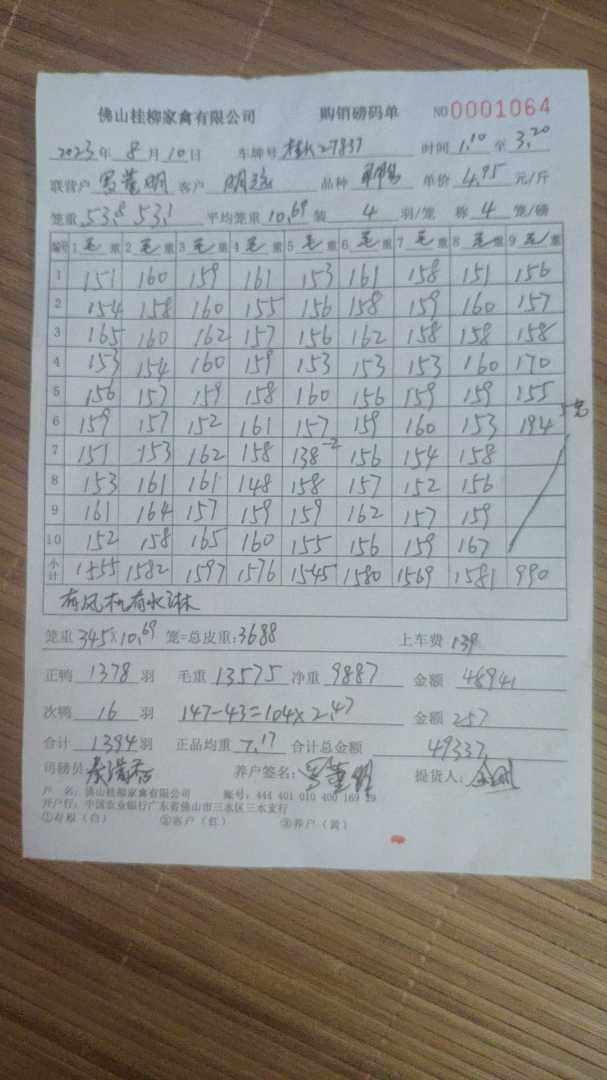 佛山桂柳家禽有限公司 购销磅码单 NO 0001064
2023年 8月 10日 车牌号 桂K27837 时间 1.10 至 3.20
联营户 罗董明 客户 品种 单价 4.95 元/斤
笼重 53.8 53.1 平均笼重 10.69 装 4 羽/笼 称 4 笼/磅
编号 1 毛 重 2 毛 重 3 毛 重 4 毛 重 5 毛 重 6 毛 重 7 毛 重 8 毛 重 9 毛 重
1 151 160 159 161 153 161 158 151 156
2 154 158 160 155 156 158 159 160 157
3 165 160 162 157 156 162 158 158 158
4 153 154 160 159 153 153 153 160 170
5 156 157 159 158 160 156 159 159 155
6 159 157 152 161 157 159 160 153 194
7 151 153 162 158 138-2 156 154 158
8 153 161 161 148 158 157 152 156
9 161 164 157 159 159 162 157 159
10 152 158 165 160 155 156 159 167
小计 1555 1582 1597 1576 1545 1580 1569 1581 990
有风机有水淋
笼重 345×10.69 笼=总皮重:3688 上车费 139
正鸭 1378 羽 毛重 13575 净重 9887 金额 48941
次鸭 16 羽 147-43=104×2.47 金额 257
合计 1394 羽 正品均重 7.17 合计总金额 49337
司磅员 养户签名: 罗董明 提货人:
户 名: 佛山桂柳家禽有限公司 账号: 444 401 010 400 169 29
开户行: 中国农业银行广东省佛山市三水区三水支行
①存根(白) ②客户(红) ③养户(黄)